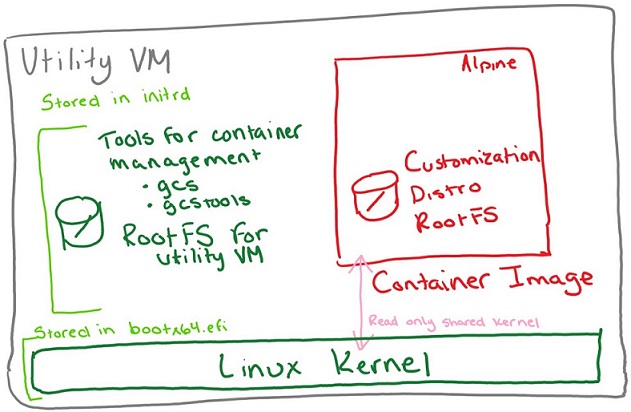 Utility VM
Stored in initrd
Tools for container
management
• gcs
• gcstools
RootFS for
Utility VM
Alpine
Customization
Distro
RootFS
Container Image
Read only shared kernel
Stored in bootx64.efi
Linux Kernel